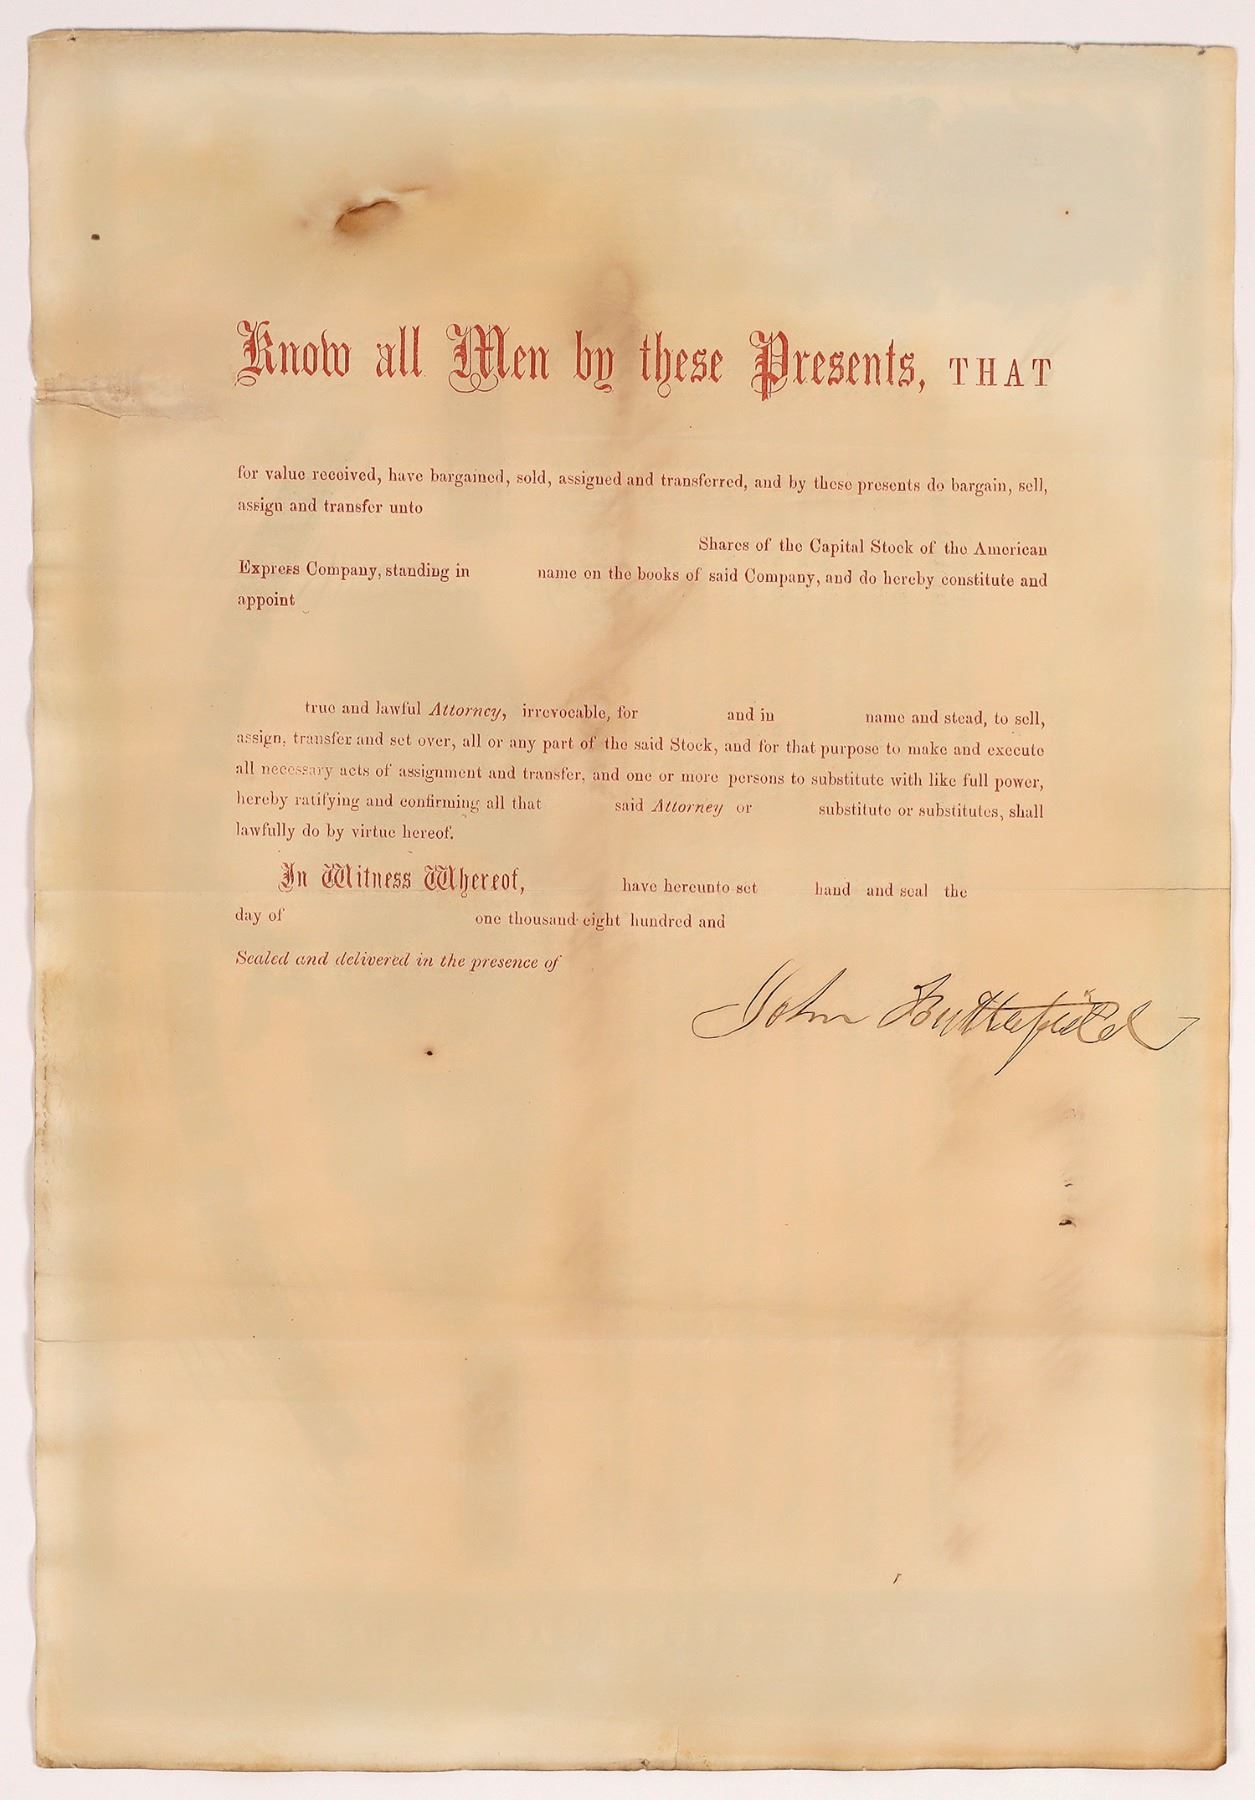 Know all Men by these Presents, THAT
for value received, have bargained, sold, assigned and transferred, and by these presents do bargain, sell,
assign and transfer unto
Shares of the Capital Stock of the American
Express Company, standing in name on the books of said Company, and do hereby constitute and
appoint
true and lawful Attorney, irrevocable, for and in name and stead, to sell,
assign, transfer and set over, all or any part of the said Stock, and for that purpose to make and execute
all necessary acts of assignment and transfer, and one or more persons to substitute with like full power,
hereby ratifying and confirming all that said Attorney or substitute or substitutes, shall
lawfully do by virtue hereof.
In Witness Whereof, have hereunto set hand and seal the
day of one thousand eight hundred and
Sealed and delivered in the presence of
John Butterfield